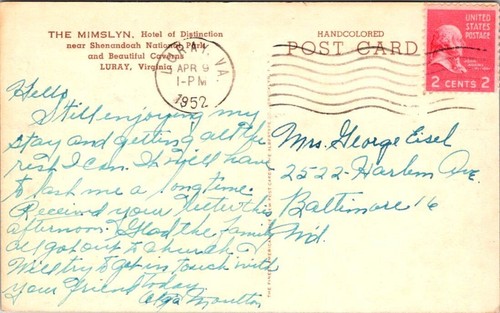 THE MIMSLYN, Hotel of Distinction
near Shenandoah National Park
and Beautiful Caverns
LURAY, Virginia
HANDCOLORED
POST CARD
UNITED
STATES
POSTAGE
2 CENTS 2
LURAY, VA.
APR 9
1-PM
1952
Hello,
Still enjoying my
stay and getting all the
rest I can. It will have
to last me a long time.
Received your letter this
afternoon. Glad the family
all got out to church.
Will try to get in touch with
your friend today.
Moulton
Mrs. George Eisel
2522-Harlem Ave.
Baltimore 16
Md.